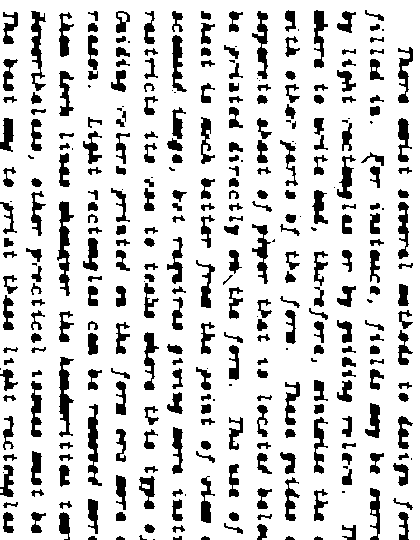 There exist several methods to design form
filled in. For instance, fields may be surr
by light rectangles or by guiding rulers. T
where to write and, therefore, minimize the
with other parts of the form. These guides c
separate sheet of paper that is located below
be printed directly on the form. The use of
sheet is much better from the point of view o
scanned image, but requires giving more instr
restricts its use to tasks where this type of
Guiding rulers printed on the form are more c
reason. Light rectangles can be removed more
then dark lines whenever the handwritten text
Nevertheless, other practical issues must be
The best way to print these light rectangles